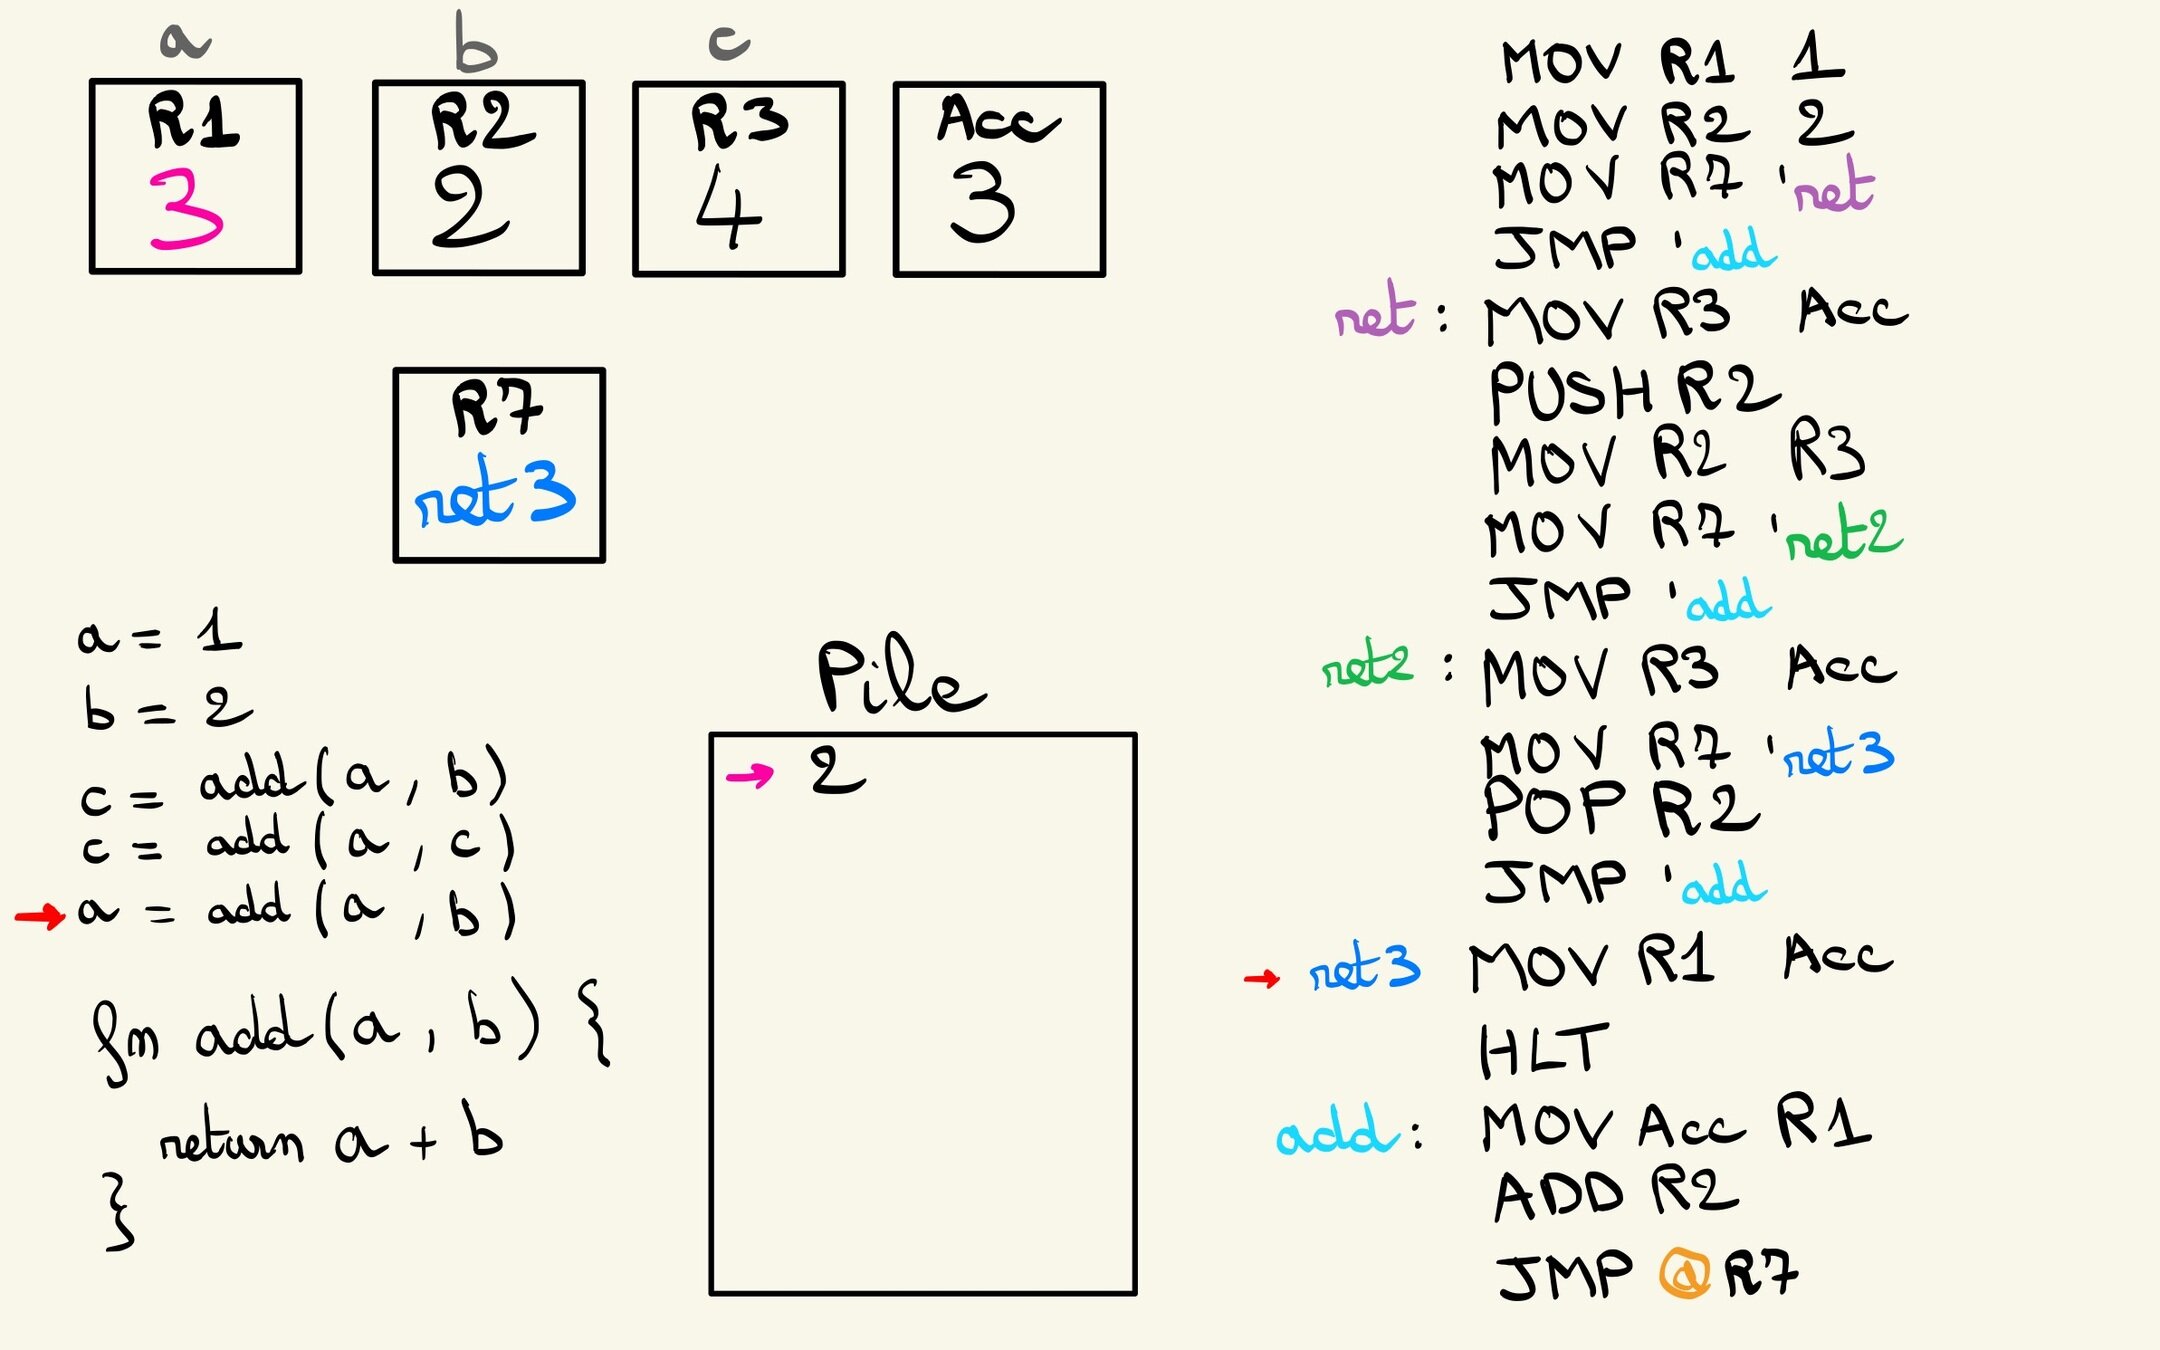 a b c
R1 R2 R3 Acc
3 2 4 3
R7
ret3
a = 1
b = 2
c = add(a, b)
c = add(a, c)
→ a = add(a, b)
fn add(a, b) {
return a + b
}
Pile
→ 2
MOV R1 1
MOV R2 2
MOV R7 'ret
JMP 'add
ret: MOV R3 Acc
PUSH R2
MOV R2 R3
MOV R7 'ret2
JMP 'add
ret2: MOV R3 Acc
MOV R7 'ret3
POP R2
JMP 'add
→ ret3 MOV R1 Acc
HLT
add: MOV Acc R1
ADD R2
JMP @R7